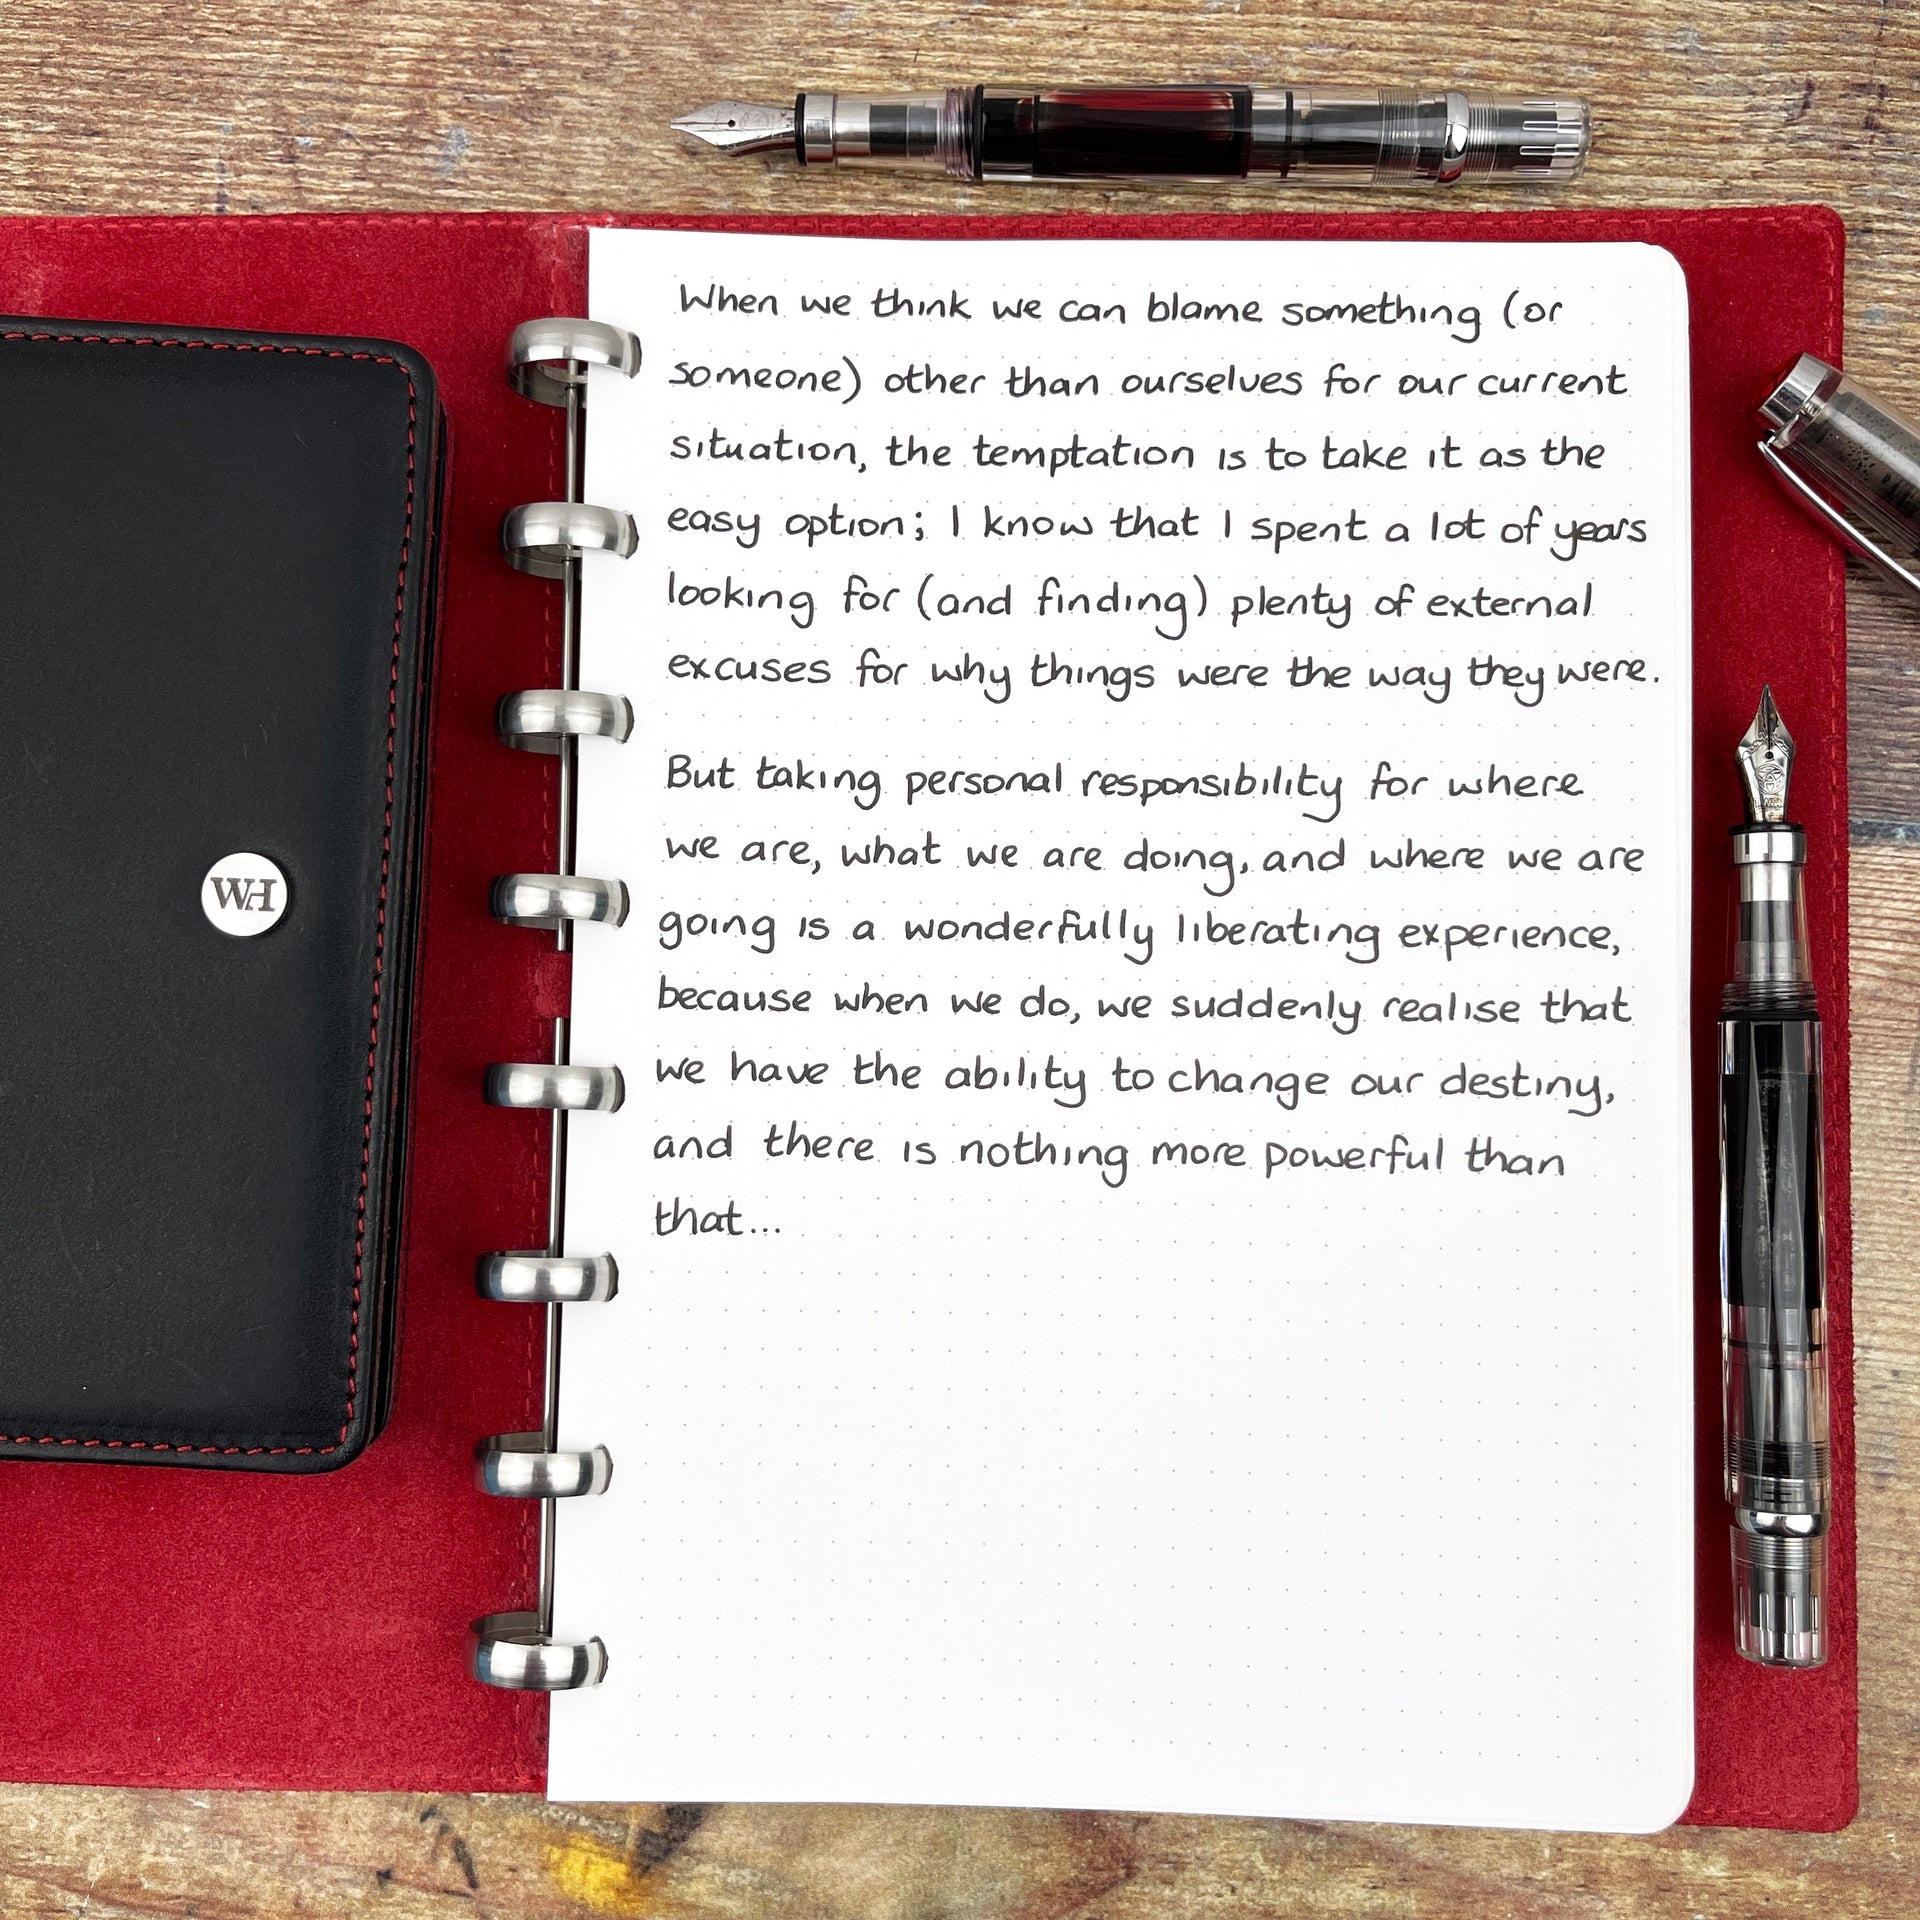 When we think we can blame something (or
someone) other than ourselves for our current
situation, the temptation is to take it as the
easy option; I know that I spent a lot of years
looking for (and finding) plenty of external
excuses for why things were the way they were.
But taking personal responsibility for where
we are, what we are doing, and where we are
going is a wonderfully liberating experience,
because when we do, we suddenly realise that
we have the ability to change our destiny,
and there is nothing more powerful than
that...
WH